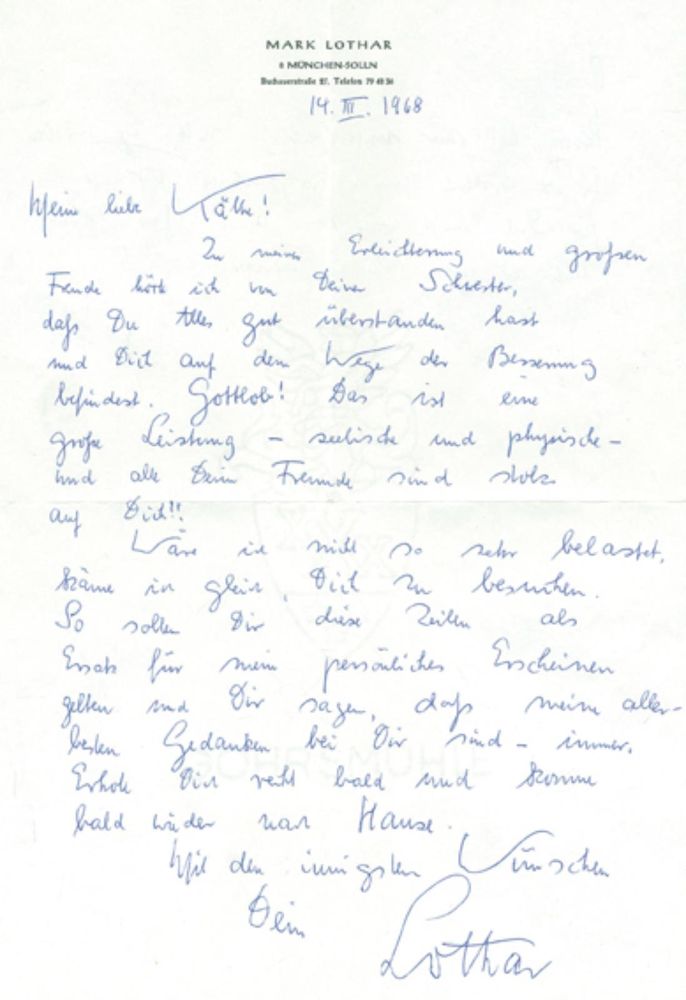 MARK LOTHAR
8 MÜNCHEN-SOLLN
Buchauerstraße 27. Telefon 79 48 36
14. III. 1968
Meine liebe Käthe!
Zu meiner Erleichterung und großen
Freude hörte ich von Deiner Schwester,
daß Du Alles gut überstanden hast
und Dich auf dem Wege der Besserung
befindest. Gottlob! Das ist eine
große Leistung – seelische und physische –
und alle Deine Freunde sind stolz
auf Dich!!
Wäre ich nicht so sehr belastet,
käme ich gleich, Dich zu besuchen.
So sollen Dir diese Zeilen als
Ersatz für mein persönliches Erscheinen
gelten und Dir sagen, daß meine aller-
besten Gedanken bei Dir sind – immer.
Erhole Dich recht bald und komme
bald wieder nach Hause.
Mit den innigsten Wünschen
Dein
Lothar
BOHRSMÜHLE